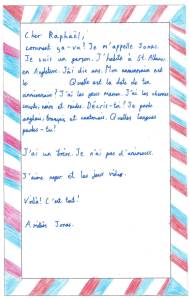 Cher Raphaël,
comment ça-va? Je m'appelle Jonas.
Je suis un garçon. J'habite à St. Albans,
en Angleterre. J'ai dix ans. Mon anniversaire est
le Quelle est la date de ton
anniversaire? J'ai les yeux marron. J'ai les cheveux
courts, noirs et raides. Décris-toi! Je parle
anglais, français et Quelles langues
parles-tu?
J'ai un frère. Je n'ai pas d'animaux.
J'aime nager et les jeux vidéo.
Voilà! C'est tout!
A bientôt Jonas.